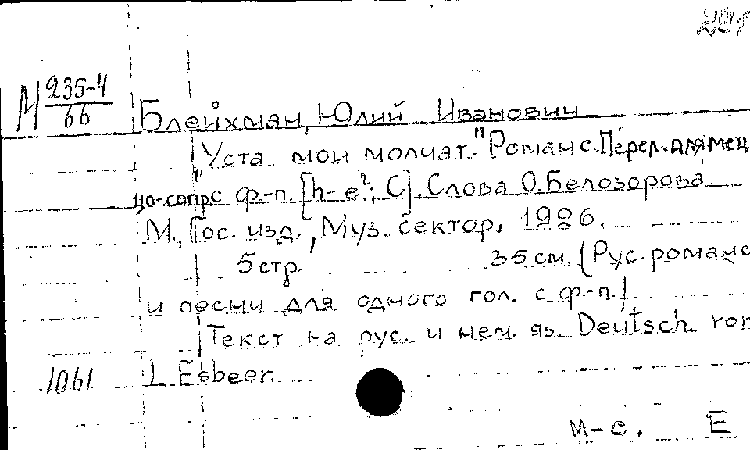 М 235-4
66
Блейхман, Юлий Иванович
"Уста мои молчат." Романс. Перел. для мец
цо-сопр. с ф-п. [h-e²; C]. Слова О. Белозорова
М., Гос. изд., Муз. сектор, 1926.
5 стр. 35 см. (Рус. романс
и песни для одного гол. с ф-п.)
Текст на рус. и нем. яз. Deutsch von
1061 L. Esbeer.
м-с. Е